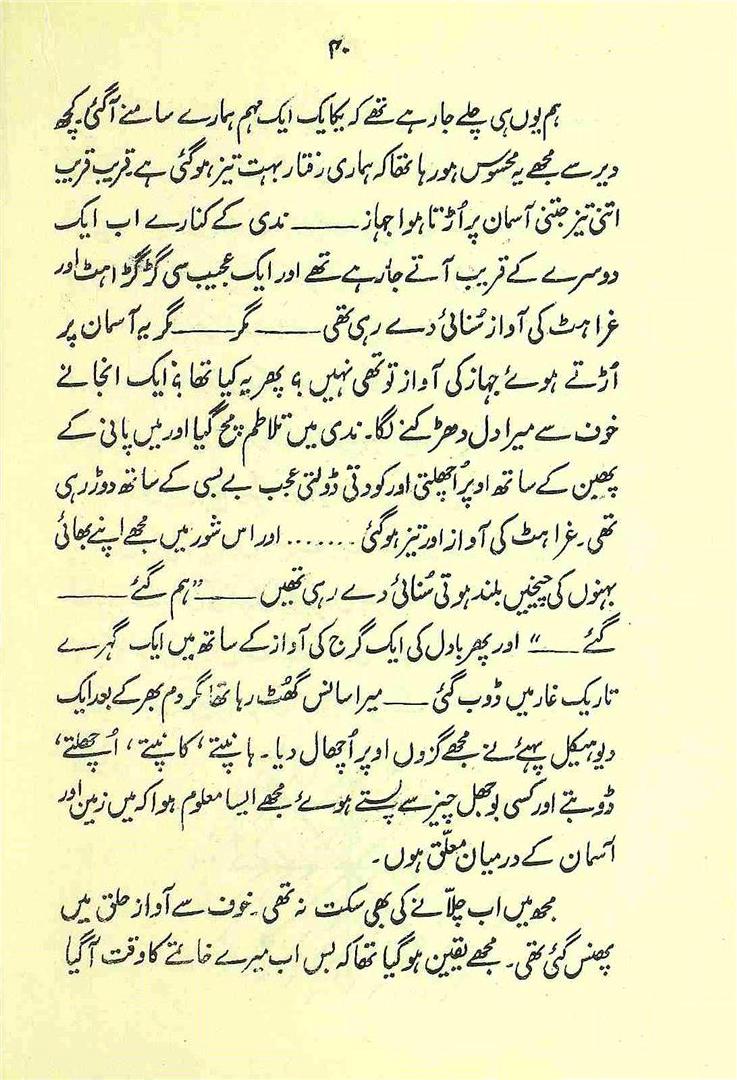 ۳۰
ہم یوں ہی چلے جارہے تھے کہ یکایک ایک مہم ہمارے سامنے آگئی۔ کچھ
دیر سے مجھے یہ محسوس ہورہا تھا کہ ہماری رفتار بہت تیز ہوگئی ہے۔ قریب قریب
اتنی تیز جتنی آسمان پر اُڑتا ہوا جہاز ——— ندی کے کنارے اب ایک
دوسرے کے قریب آتے جارہے تھے اور ایک عجیب سی گڑگڑاہٹ اور
غراہٹ کی آواز سُنائی دے رہی تھی ——— مگر ——— مگر یہ آسمان پر
اُڑتے ہوئے جہاز کی آواز تو تھی نہیں ؟ پھر یہ کیا تھا ؟ ایک انجانے
خوف سے میرا دل دھڑکنے لگا۔ ندی میں تلاطم مچ گیا اور میں پانی کے
پھین کے ساتھ اوپر اُچھلتی اور کودتی ڈولتی عجب بے بسی کے ساتھ دوڑ رہی
تھی۔ غراہٹ کی آواز اور تیز ہوگئی ....... اور اس شور میں مجھے اپنے بھائی
بہنوں کی چیخیں بلند ہوتی سُنائی دے رہی تھیں ——— ”ہم گئے ———
گئے ———“ اور پھر بادل کی ایک گرج کی آواز کے ساتھ میں ایک گہرے
تاریک غار میں ڈوب گئی ——— میرا سانس گھُٹ رہا تھا مگر دم بھر کے بعد ایک
دیوہیکل پہئے نے مجھے گزوں اوپر اُچھال دیا۔ ہانپتے، کانپتے، اُچھلتے،
ڈوبتے اور کسی بوجھل چیز سے پِستے ہوئے مجھے ایسا معلوم ہوا کہ میں زمین اور
آسمان کے درمیان معلّق ہوں۔
مجھ میں اب چلّانے کی بھی سکت نہ تھی۔ خوف سے آواز حلق میں
پھنس گئی تھی۔ مجھے یقین ہوگیا تھا کہ بس اب میرے خاتمے کا وقت آگیا